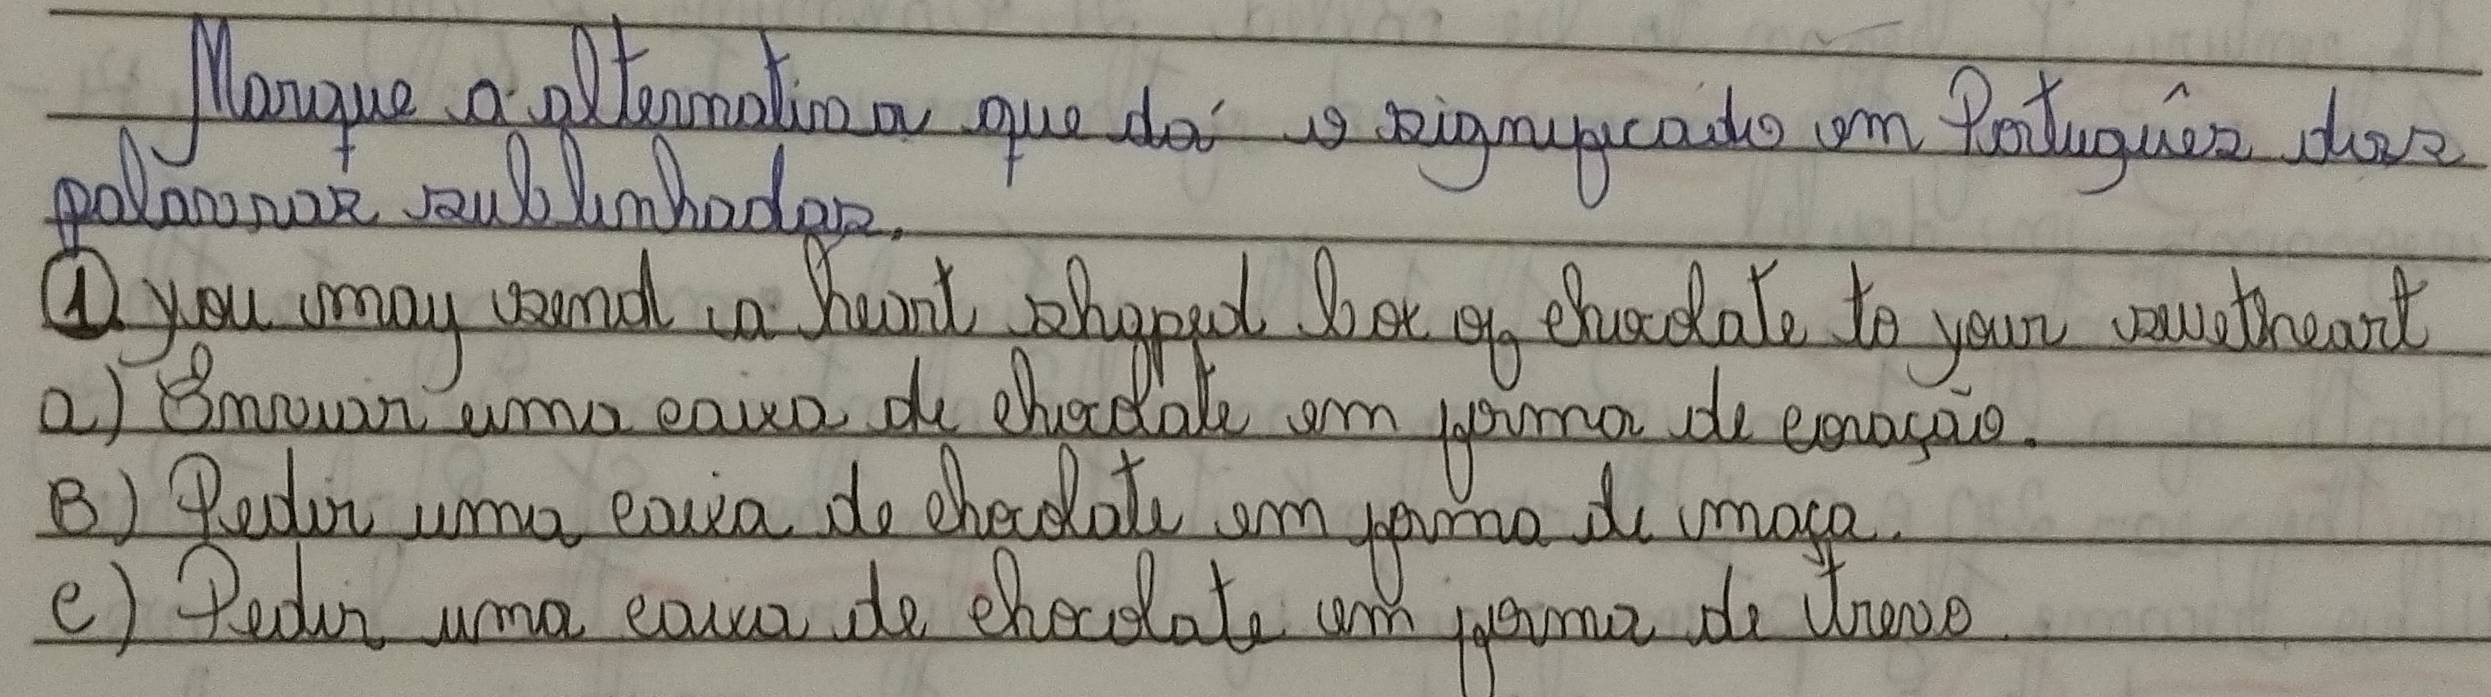 Marque a alternativa que dá o significado em Português das
palavras sublinhadas.
① you may send a heart shaped box of chocolate to your sweetheart
a) Enviar uma caixa de chocolate em forma de coração.
B) Pedir uma caixa de chocolate em forma de maça.
c) Pedir uma caixa de chocolate em forma de trevo